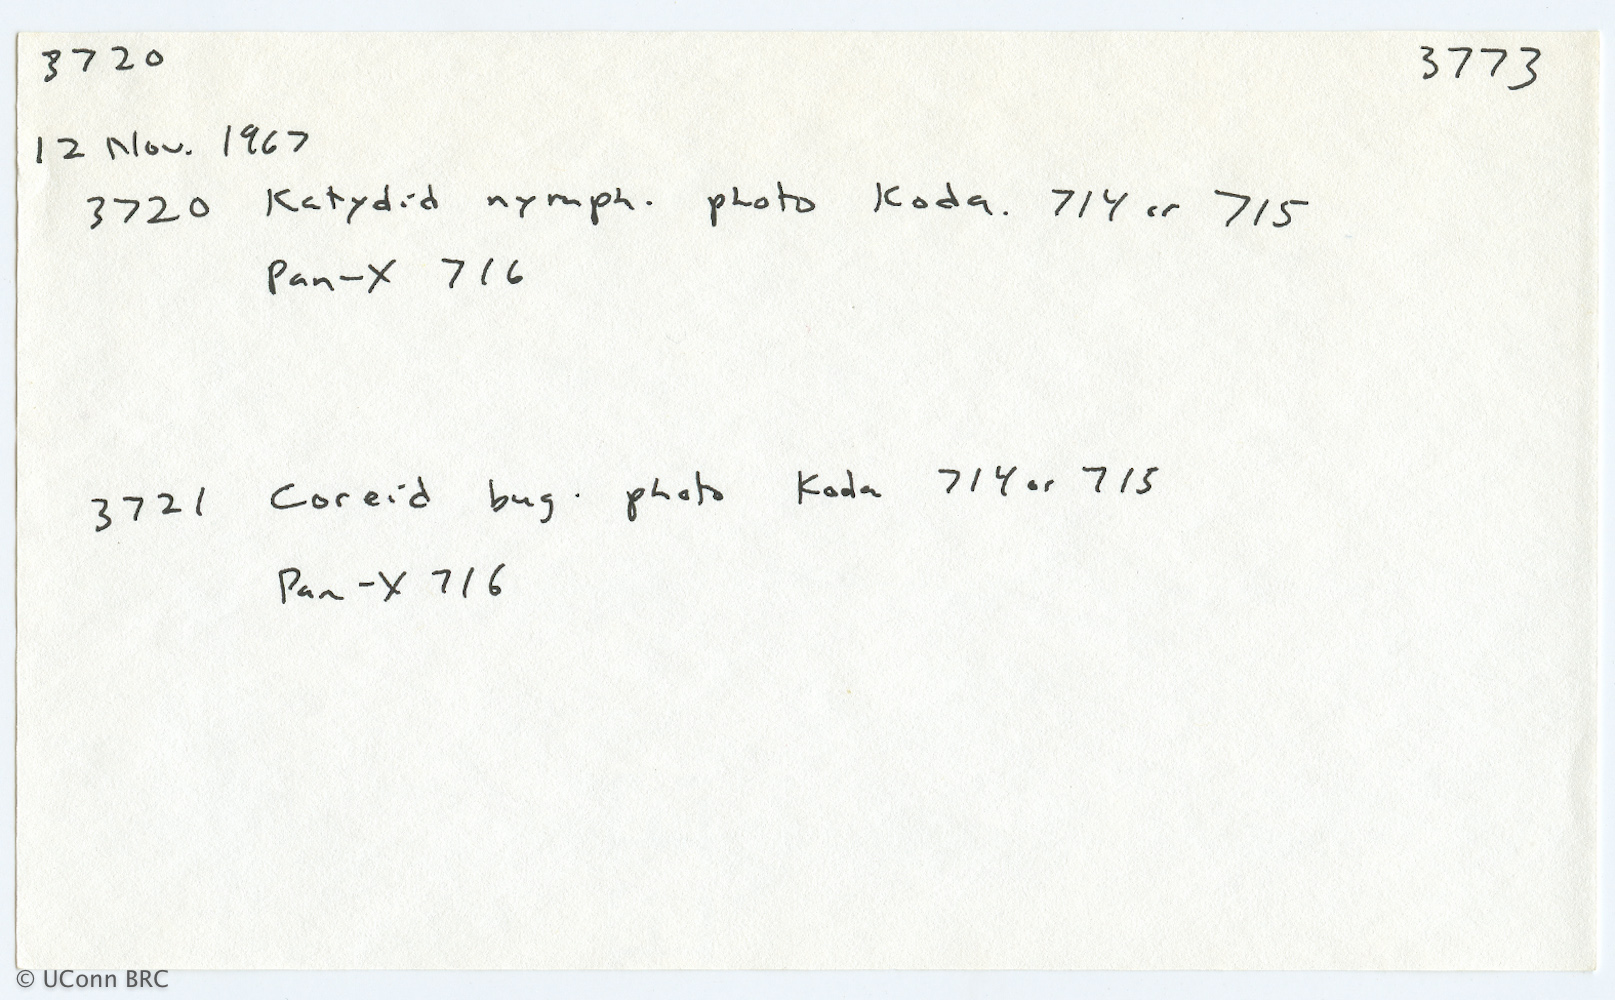 3720 3773
12 Nov. 1967
3720 Katydid nymph. photo Koda. 714 or 715
Pan-X 716
3721 Coreid bug. photo Koda 714 or 715
Pan-X 716
© UConn BRC